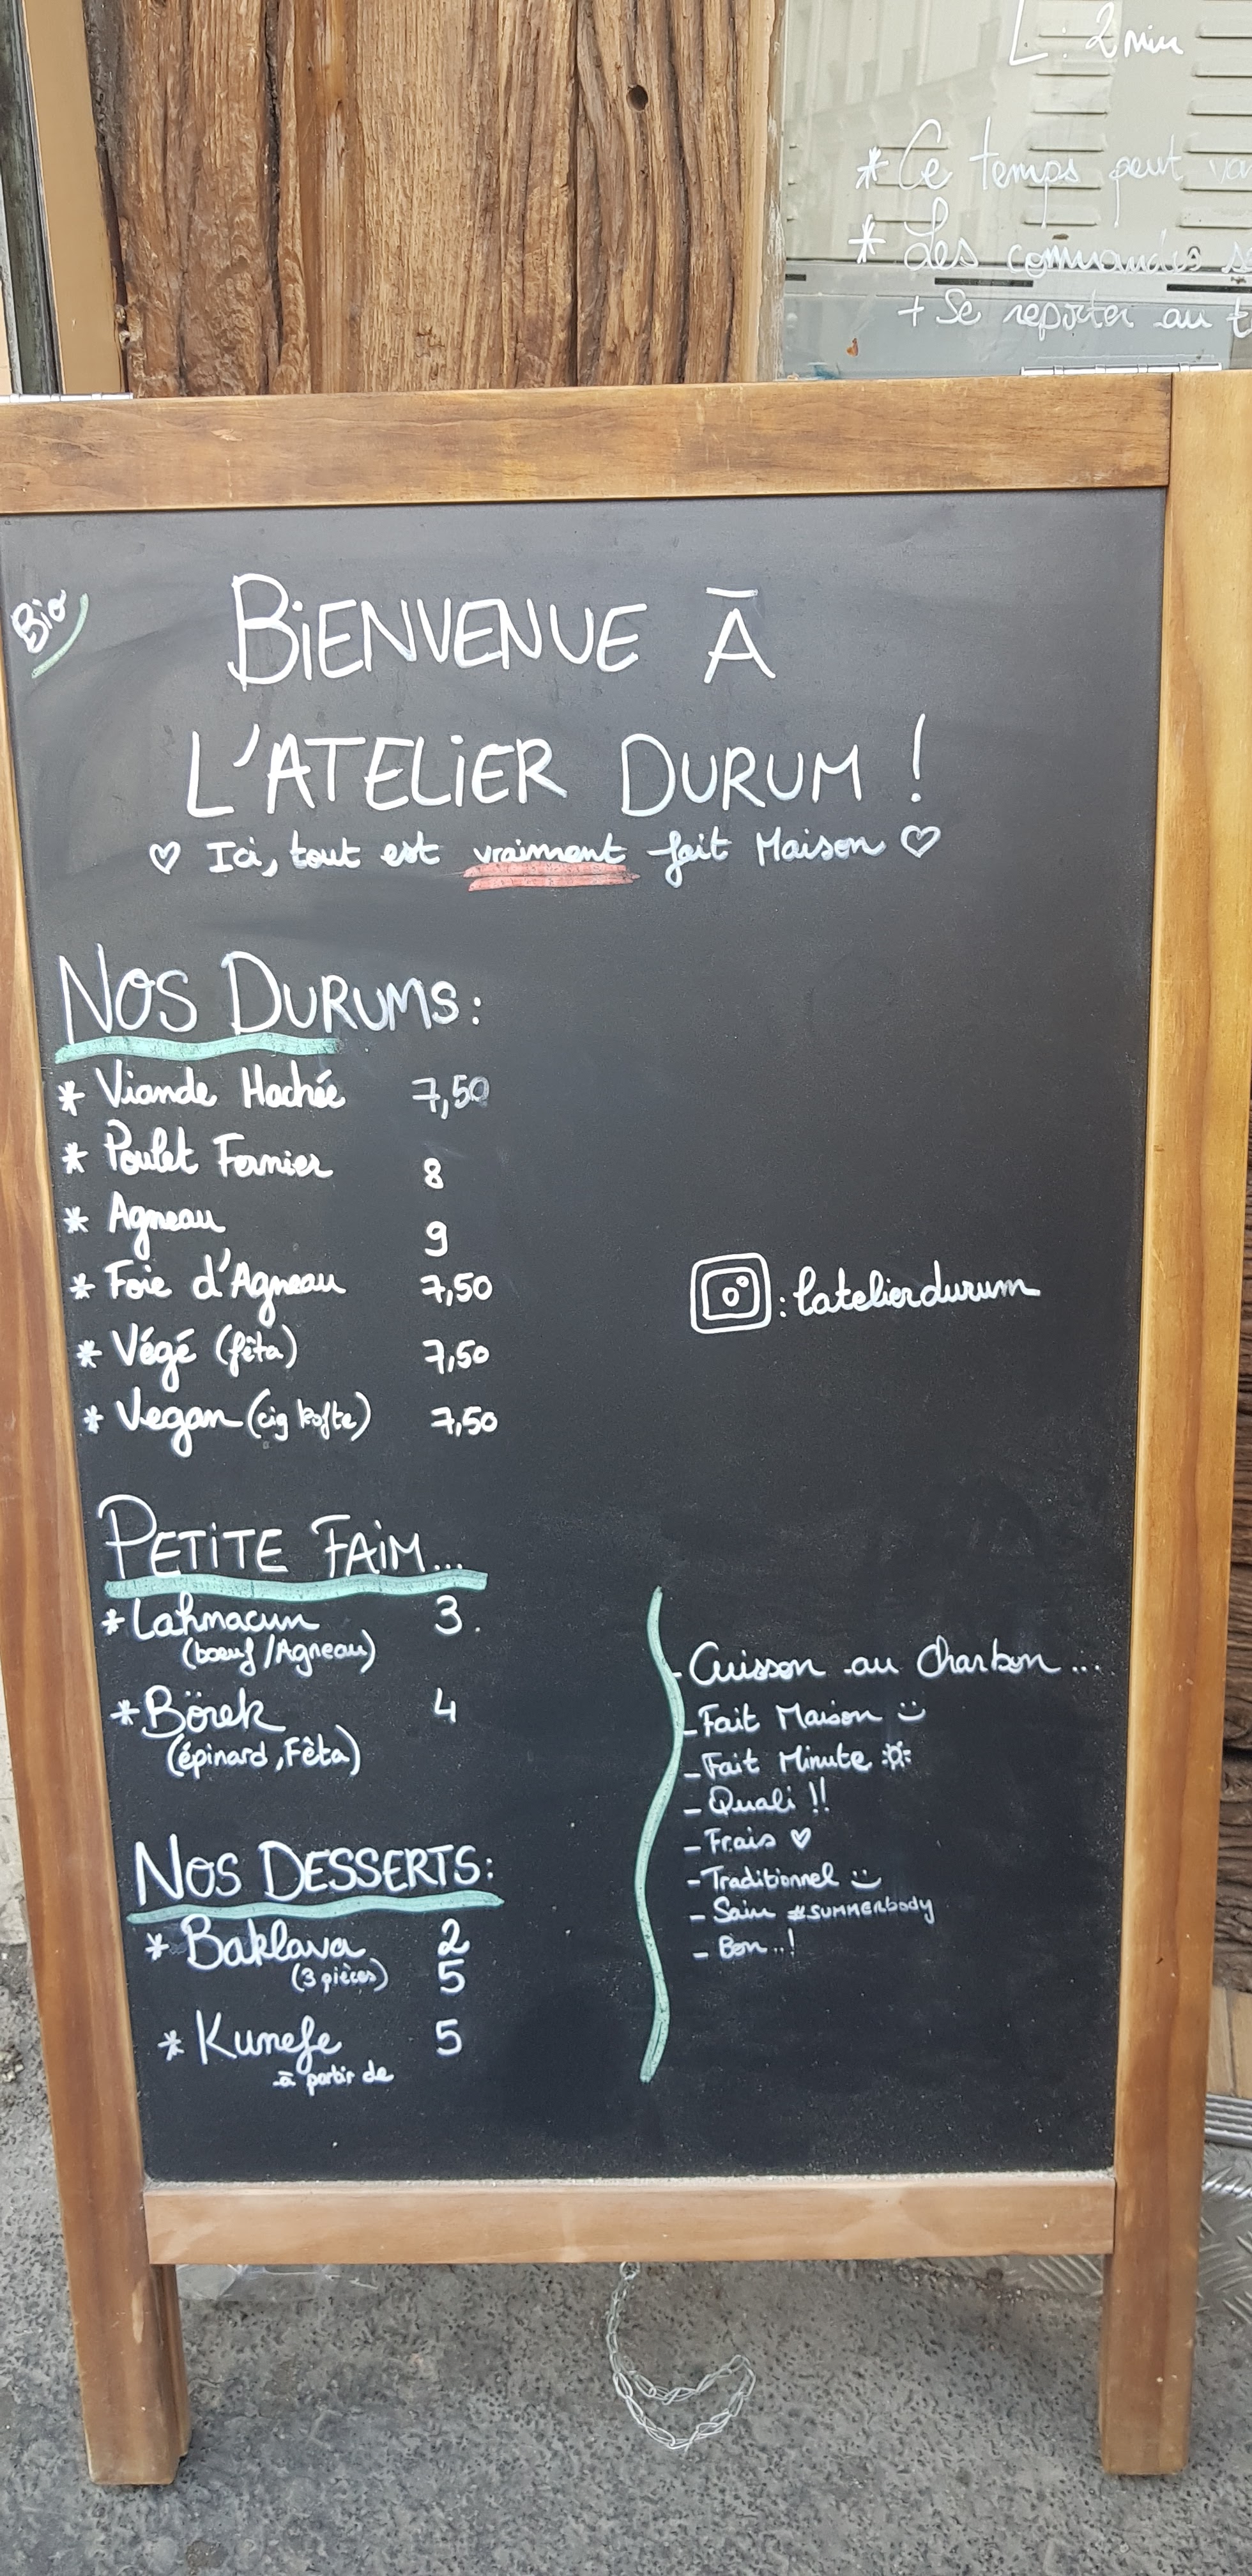 L : 2 min
* Ce temps peut
* Les commandes
+ Se reporter au t
Bio
BiENVENUE À
L'ATELiER DURUM !
♡ Ici, tout est vraiment fait Maison ♡
NOS DURUMS :
* Viande Hachée 7,50
* Poulet Fermier 8
* Agneau 9
* Foie d'Agneau 7,50
* Végé (fêta) 7,50
* Vegan (cig kofte) 7,50
: latelierdurum
PETiTE FAiM...
* Lahmacun 3.
(boeuf/Agneau)
* Börek 4
(épinard, Fêta)
- Cuisson au charbon...
- Fait Maison
- Fait Minute
- Quali !!
- Frais ♡
- Traditionnel
- Sain #summerbody
- Bon..!
NOS DESSERTS :
* Baklava 2
(3 pièces) 5
* Kunefe 5
à partir de